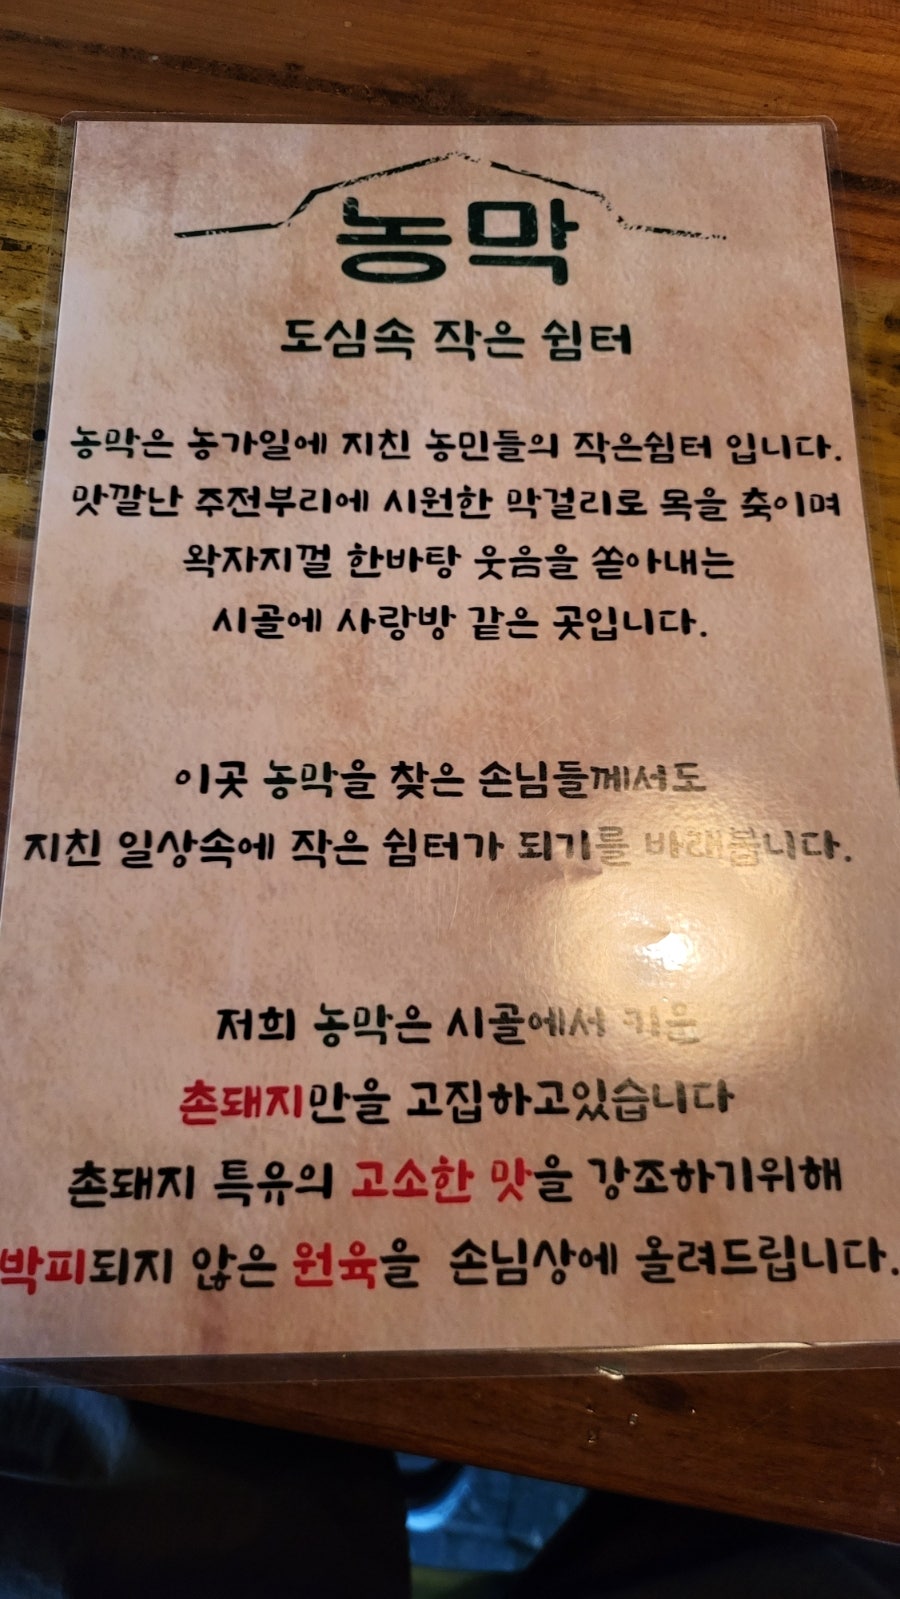 농막
도심속 작은 쉼터
농막은 농가일에 지친 농민들의 작은쉼터 입니다.
맛깔난 주전부리에 시원한 막걸리로 목을 축이며
왁자지껄 한바탕 웃음을 쏟아내는
시골에 사랑방 같은 곳입니다.
이곳 농막을 찾은 손님들께서도
지친 일상속에 작은 쉼터가 되기를 바래봅니다.
저희 농막은 시골에서 키운
촌돼지만을 고집하고있습니다
촌돼지 특유의 고소한 맛을 강조하기위해
박피되지 않은 원육을 손님상에 올려드립니다.